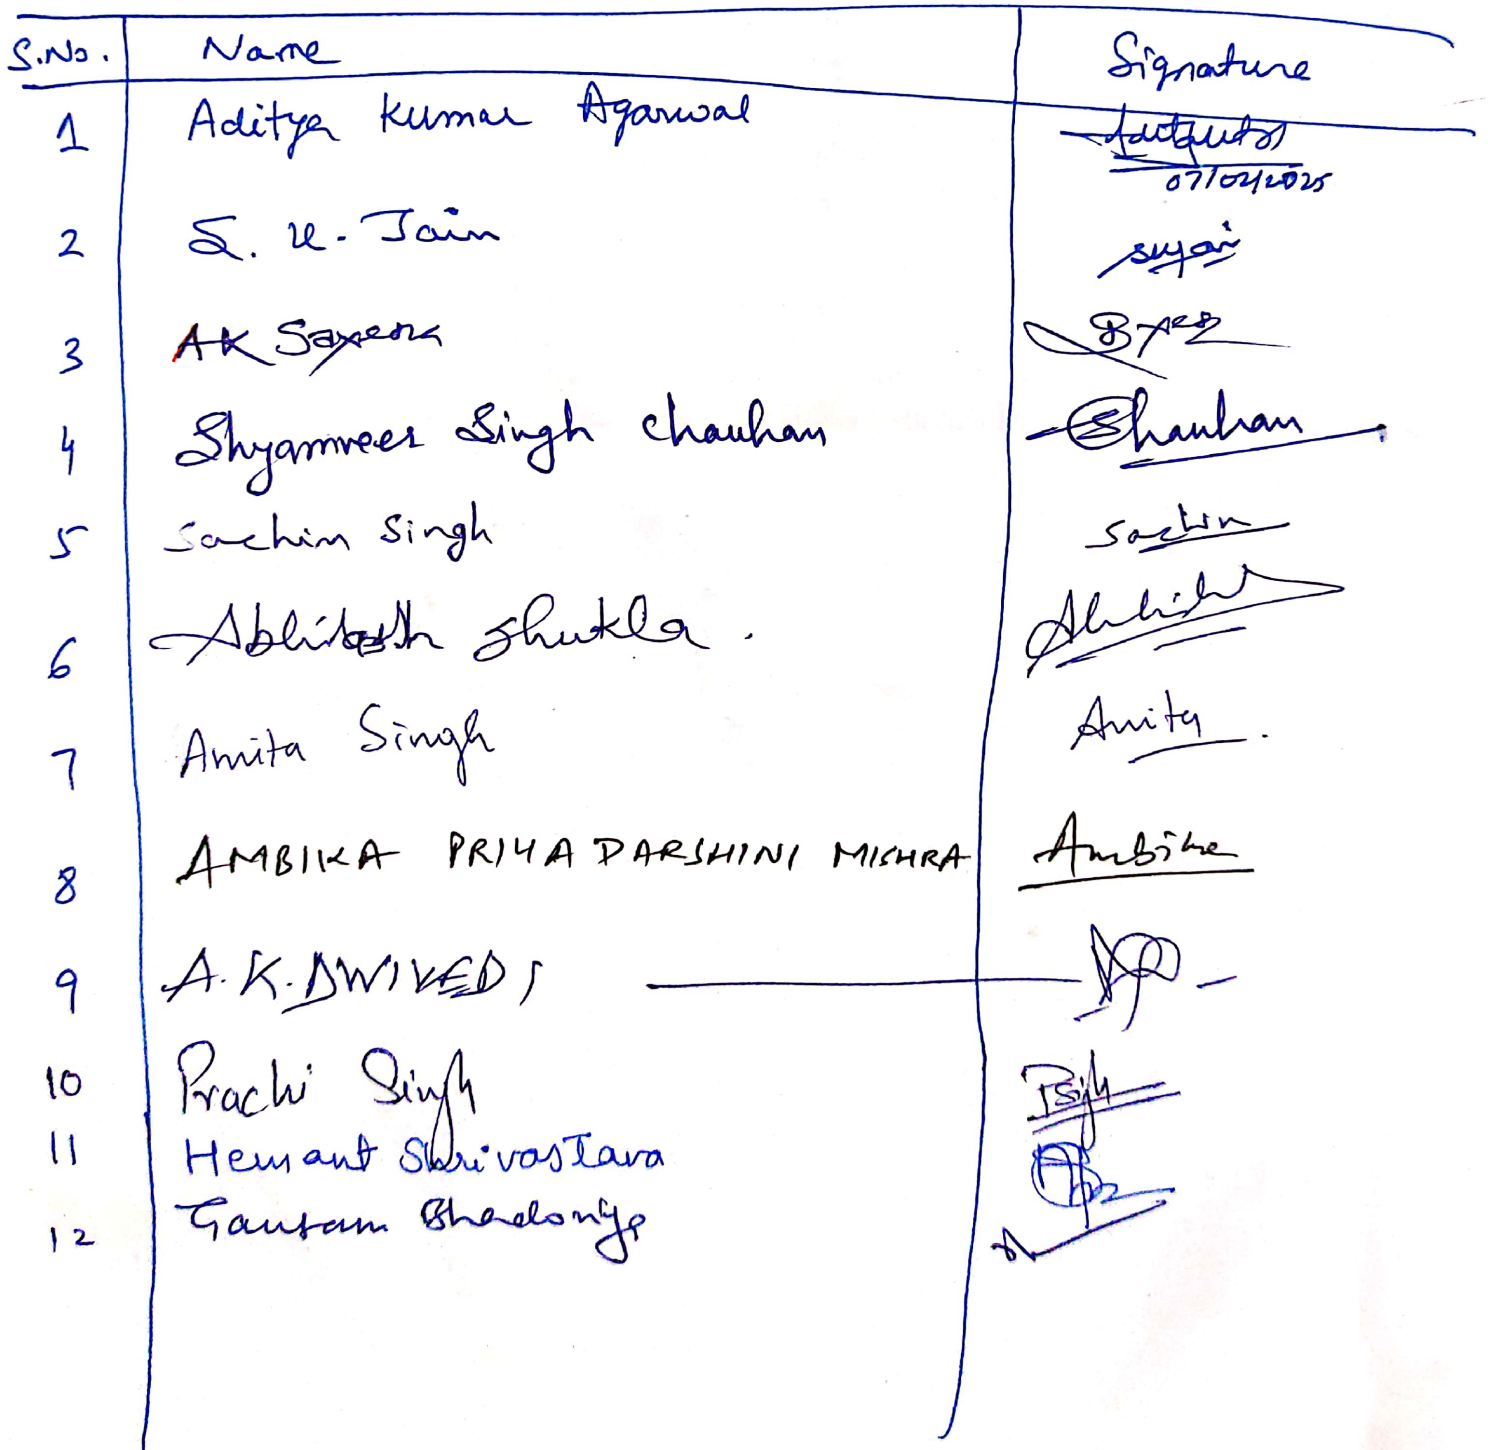 S.No. Name Signature
1 Aditya Kumar Agarwal
07/02/2025
2 S. K. Jain
3 AK Saxena
4 Shyamveer Singh Chauhan Chauhan
5 Sachin Singh Sachin
6 Shukla.
7 Amita Singh Amita.
8 AMBIKA PRIYADARSHINI MISHRA Ambika
9 A.K. DWIVEDI
10 Prachi Singh
11 Hemant Shrivastava
12 Gautam